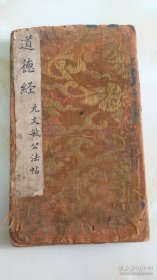 道德经
元文敏公法帖